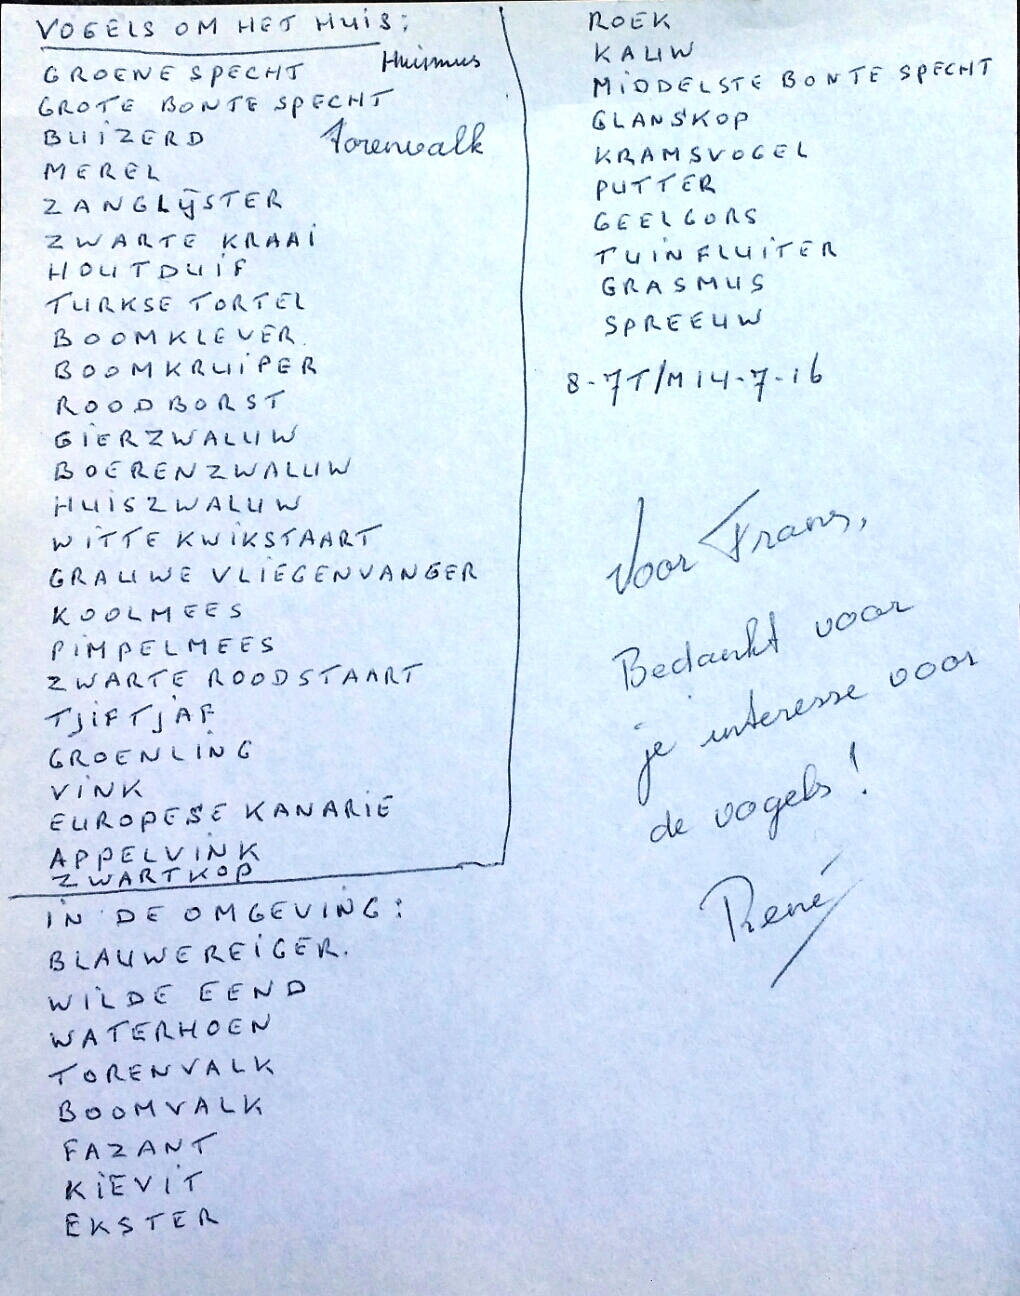 VOGELS OM HET HUIS:
Huismus
GROENE SPECHT
GROTE BONTE SPECHT
BUIZERD
Torenvalk
MEREL
ZANGLIJSTER
ZWARTE KRAAI
HOUTDUIF
TURKSE TORTEL
BOOMKLEVER
BOOMKRUIPER
ROODBORST
GIERZWALUW
BOERENZWALUW
HUISZWALUW
WITTE KWIKSTAART
GRAUWE VLIEGENVANGER
KOOLMEES
PIMPELMEES
ZWARTE ROODSTAART
TJIFTJAF
GROENLING
VINK
EUROPESE KANARIE
APPELVINK
ZWARTKOP
IN DE OMGEVING:
BLAUWE REIGER.
WILDE EEND
WATERHOEN
TORENVALK
BOOMVALK
FAZANT
KIEVIT
EKSTER
ROEK
KAUW
MIDDELSTE BONTE SPECHT
GLANSKOP
KRAMSVOGEL
PUTTER
GEELGORS
TUINFLUITER
GRASMUS
SPREEUW
8-7 T/M 14-7-16
Voor Frans,
Bedankt voor
je interesse voor
de vogels!
René